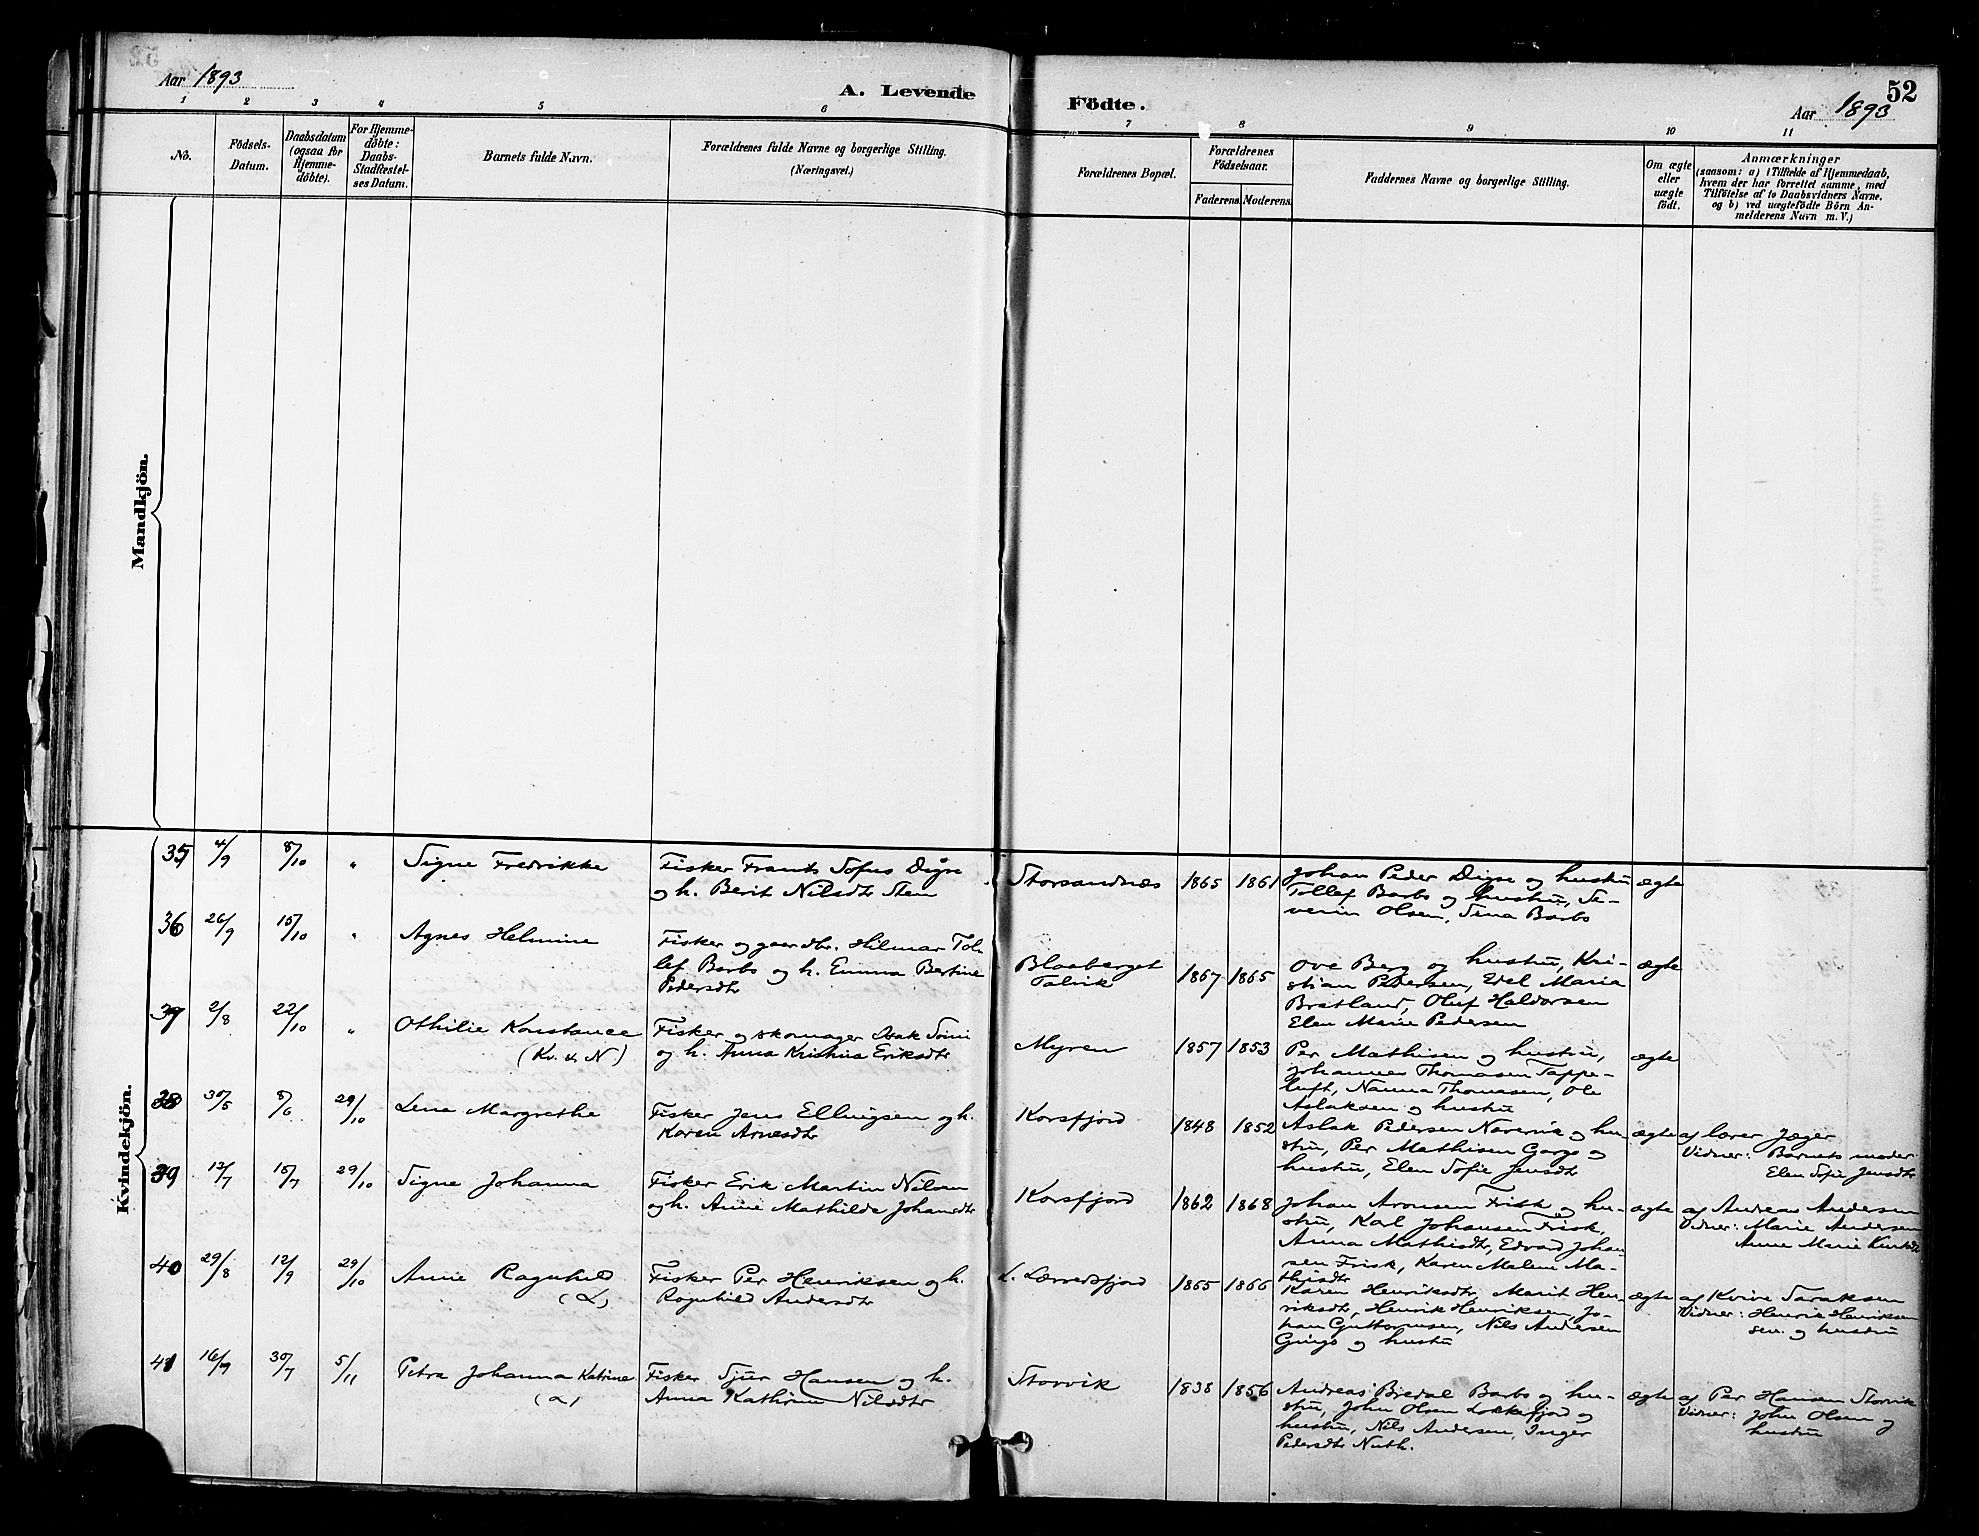 Aar 1893
A. Levende Födte.
Aar 1893
52
1 2 3 4 5 6 7 8 9 10 11
No.
Födsels-
Datum.
Daabsdatum
(ogsaa for
Hjemme-
döbte).
For Hjemme-
döbte:
Daabs-
Stadfæstel-
ses Datum.
Barnets fulde Navn.
Forældrenes fulde Navne og borgerlige Stilling.
(Næringsvei.)
Forældrenes Bopæl.
Forældrenes
Födselsaar.
Faderens. Moderens.
Faddernes Navne og borgerlige Stilling.
Om ægte
eller
uægte
födt.
Anmærkninger
(saasom: a) i Tilfælde af Hjemmedaab,
hvem der har forrettet samme, med
Tilföielse af to Daabsvidners Navne.
og b) ved uægtefödte Börn An-
melderens Navn m. V.)
Mandkjön.
Kvindekjön.
35 4/9 8/10 " Signe Fredrikke
Fisker Frants Sofus Digre
og h. Berit Nilsdtr Sten
Storsandnæs 1865 1861
Johan Peder Digre og hustru
Tollef Barbo og hustru, Se-
verin Olsen, Sina Barbo
ægte
36 26/9 15/10 " Agnes Helmine
Fisker og gaardbr. Hilmar Tol-
lef Barbo og h. Emma Bertine
Pedersdtr
Blaaberget
Talvik
1867 1865
Ove Berg og hustru, Kri-
stian Pedersen, Edel Maria
Bratland, Oluf Haldorsen
Elen Marie Pedersen
ægte
37 2/8 22/10 " Othilie Konstance
(Kv. & N)
Fisker og skomager Isak Simi
og h. Anna Kristina Eriksdtr
Myren 1857 1853
Per Mathisen og hustru,
Johannes Thomasen Tappe-
luft, Nanna Thomasen, Ole
Aslaksen og hustru
ægte
38 30/5 8/6 29/10 Lena Margrethe
Fisker Jens Ellingsen og h.
Karen Arnesdtr
Korsfjord 1848 1852
Aslak Pedersen Nerervik og hu-
stru, Per Mathisen Gargo og
hustru, Elen Sofie Jensdtr
ægte
af lærer Jæger
Vidner: Barnets moder
Elen Sofie Jensdtr
39 12/7 15/7 29/10 Signe Johanna
Fisker Erik Martin Nilsen
og h. Anne Mathilde Johansdtr
Korsfjord 1862 1868
Johan Aronsen Frisk og hu-
stru, Karl Johansen Frisk,
Anna Mathisdtr, Edvard Johan-
sen Frisk, Karen Malene Ma-
thisdtr
ægte
af Andreas Andersen
Vidner: Marie Andersen
Anne Marie
40 29/8 12/9 29/10 Anne Ragnhild
(L)
Fisker Per Henriksen og h.
Ragnhild Andersdtr
L. Lærredsfjord 1865 1866
Karen Henriksdtr, Marit Hen-
riksdtr, Henrik Henriksen, Jo-
han Guttormsen, Nils Andersen
Gingo og hustru
ægte
af Kvive Saraksen
Vidner: Henrik Henriksen
sen. og hustru
41 16/9 30/7 5/11 Petra Johanna Katrine
(L)
Fisker Sjur Hansen og h.
Anna Kathrine Nilsdtr
Storvik 1838 1856
Andreas Bredal Barbo og hu-
stru, John Olsen Lokkefjord og
hustru, Nils Andersen, Inger
Pedersdtr Nuth.
ægte
af Per Hansen Storvik
Vidner: John Olsen og
hustru